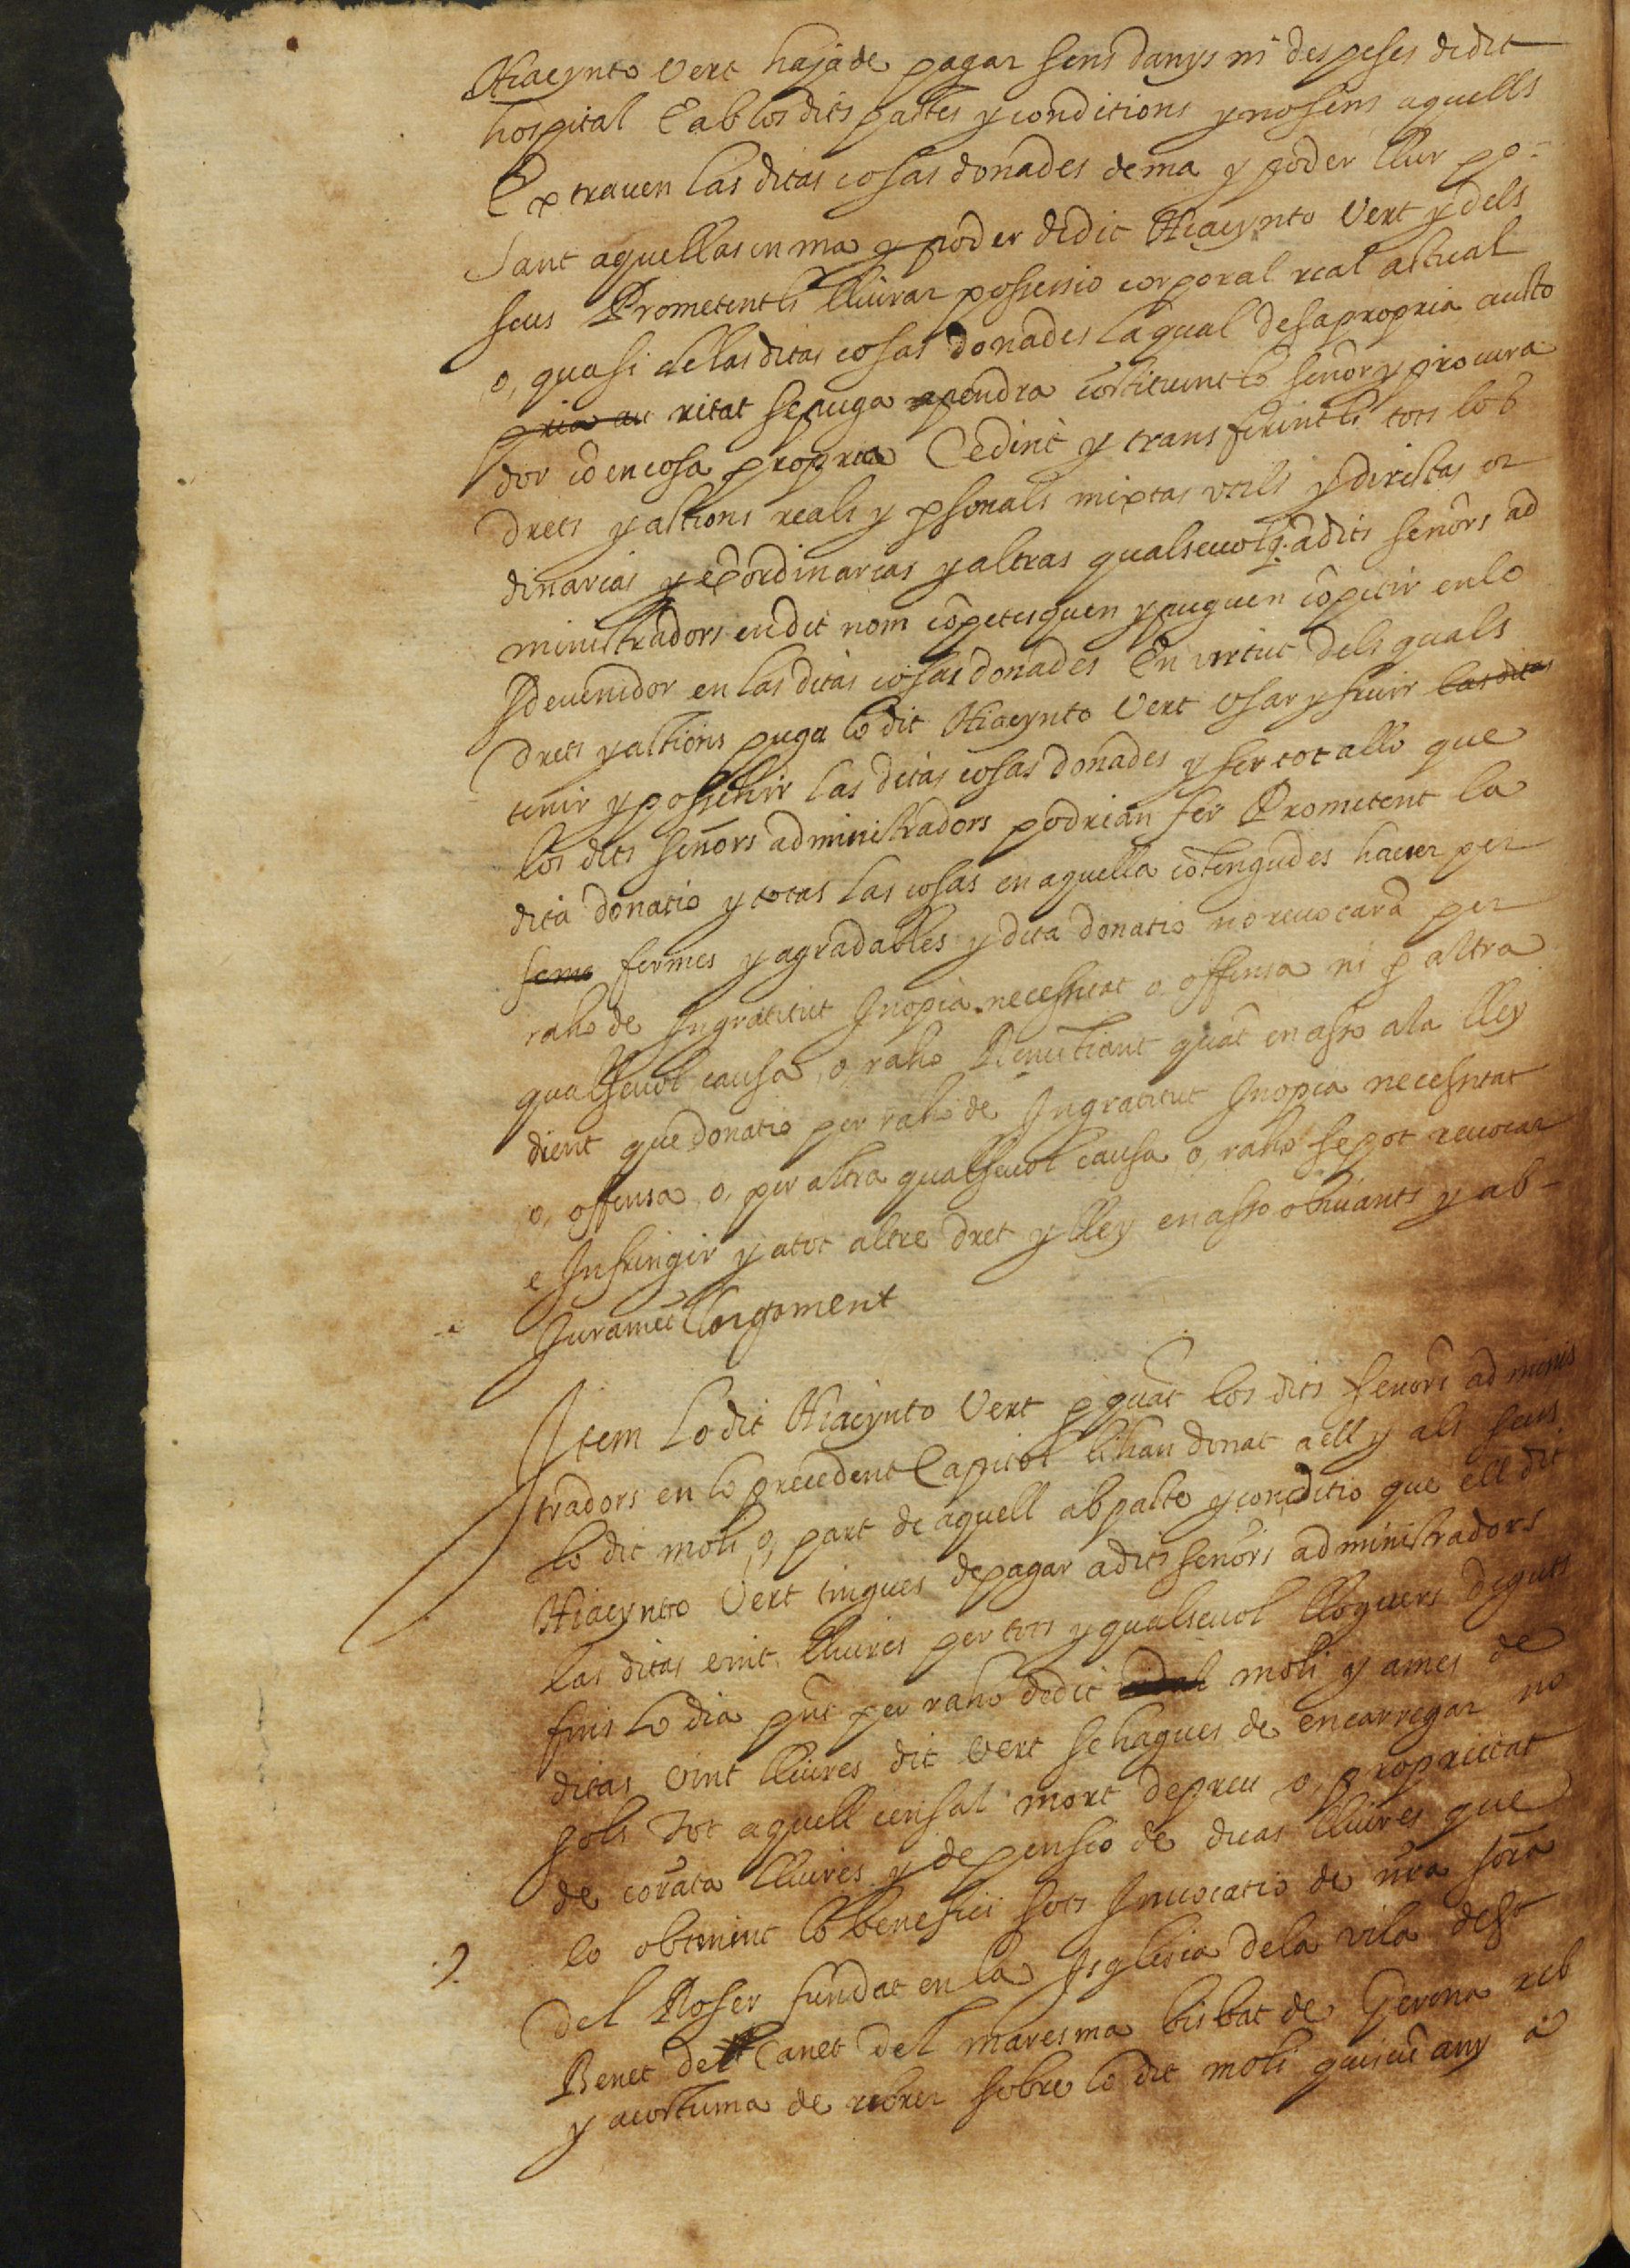 Hiacynto Vert haja de pagar sens danys ni despeses de dit
hospital E ab los dits pactes y conditions y no sens aquells
Extrauen las ditas cosas donades de ma y poder llur po-
sant aquellas en ma y poder de dit Hiacynto Vert y dels
seus Prometentli lliurar possessio corporal real actual
o, quasi de las ditas cosas donades la qual de sa propria aucto
pria au ritat se puga apendra cōstituintlo señor y procura
dor cō en cosa propria Cedint y transferintli tots los
drets y actions reals y psonals mixtas vtils y directas or
dinarias y exordinarias y altras qualseuol q. a dits señors ad
ministradors en dit nom cōpetesquen y puguen cōpetir en lo
sdeuenidor en las ditas cosas donades En virtut dels quals
drets y actions puga lo dit Hiacynto Vert vsar y fruir las ditas
tenir y possehir las ditas cosas donades y fer tot allo que
los dits señors administradors podrian fer Prometent la
dita donatio y totas las cosas en aquella cōtengudes hauer per
seme fermes y agradables y dita donatio no reuocarā per
raho de Ingratitut Inopia necessitat o offensa ni p altra
qualseuol causa, o, raho Renūtiant quāt en asso a la lley
dient que donatio per raho de Ingratitut Inopia necessitat
o, offensa, o, per altra qualseuol causa o, raho se pot reuocar
e Infringir y a tot altre dret y lley en asso obuiants y ab-
Juramēt Llargament
Item Lo dit Hiacynto Vert p quāt los dits señors adminis
tradors en lo precedent Capitol li han donat a ell y als seus
lo dit moli, o, part de aquell ab pacte y conditio que ell dit
Hiacynto Vert tingues de pagar a dits señors administradors
las ditas vint lliures per tots y qualseuol lloguers deguts
fins lo dia pnt per raho de dit moli y a mes de
ditas vint lliures dit Vert se hagues de encarregar no
sols tot aquell censal mort de preu o, proprietat
de corāta lliures y de pensio de duas lliures que
lo obtenint lo benefici sots Inuocatio de nra sōra
del Roser fundat en la Isglesia de la vila de St
Benet del Canet del maresma bisbat de Gerona reb
y acostuma de rebrer sobre lo dit moli quiscū any a